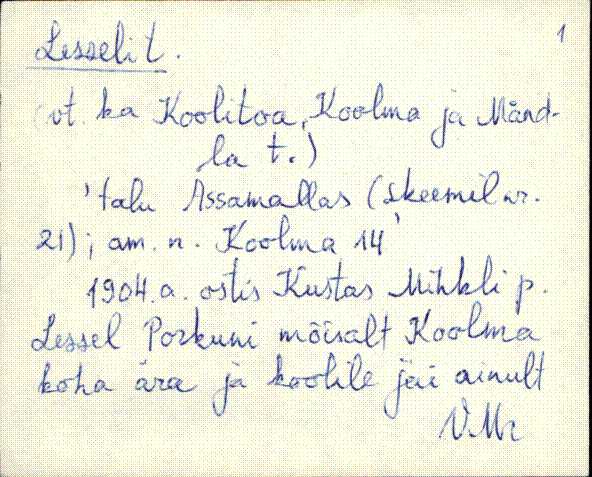 1
Lesseli t.
(vt. ka Koolitoa, Koolma ja Männd-
la t.)
'talu Assamallas (skeemil nr.
21); am. n. Koolma 14'
1904. a. ostis Kustas Mihkli p.
Lessel Porkuni mõisalt Koolma
koha ära ja koolile jäi ainult
VMr